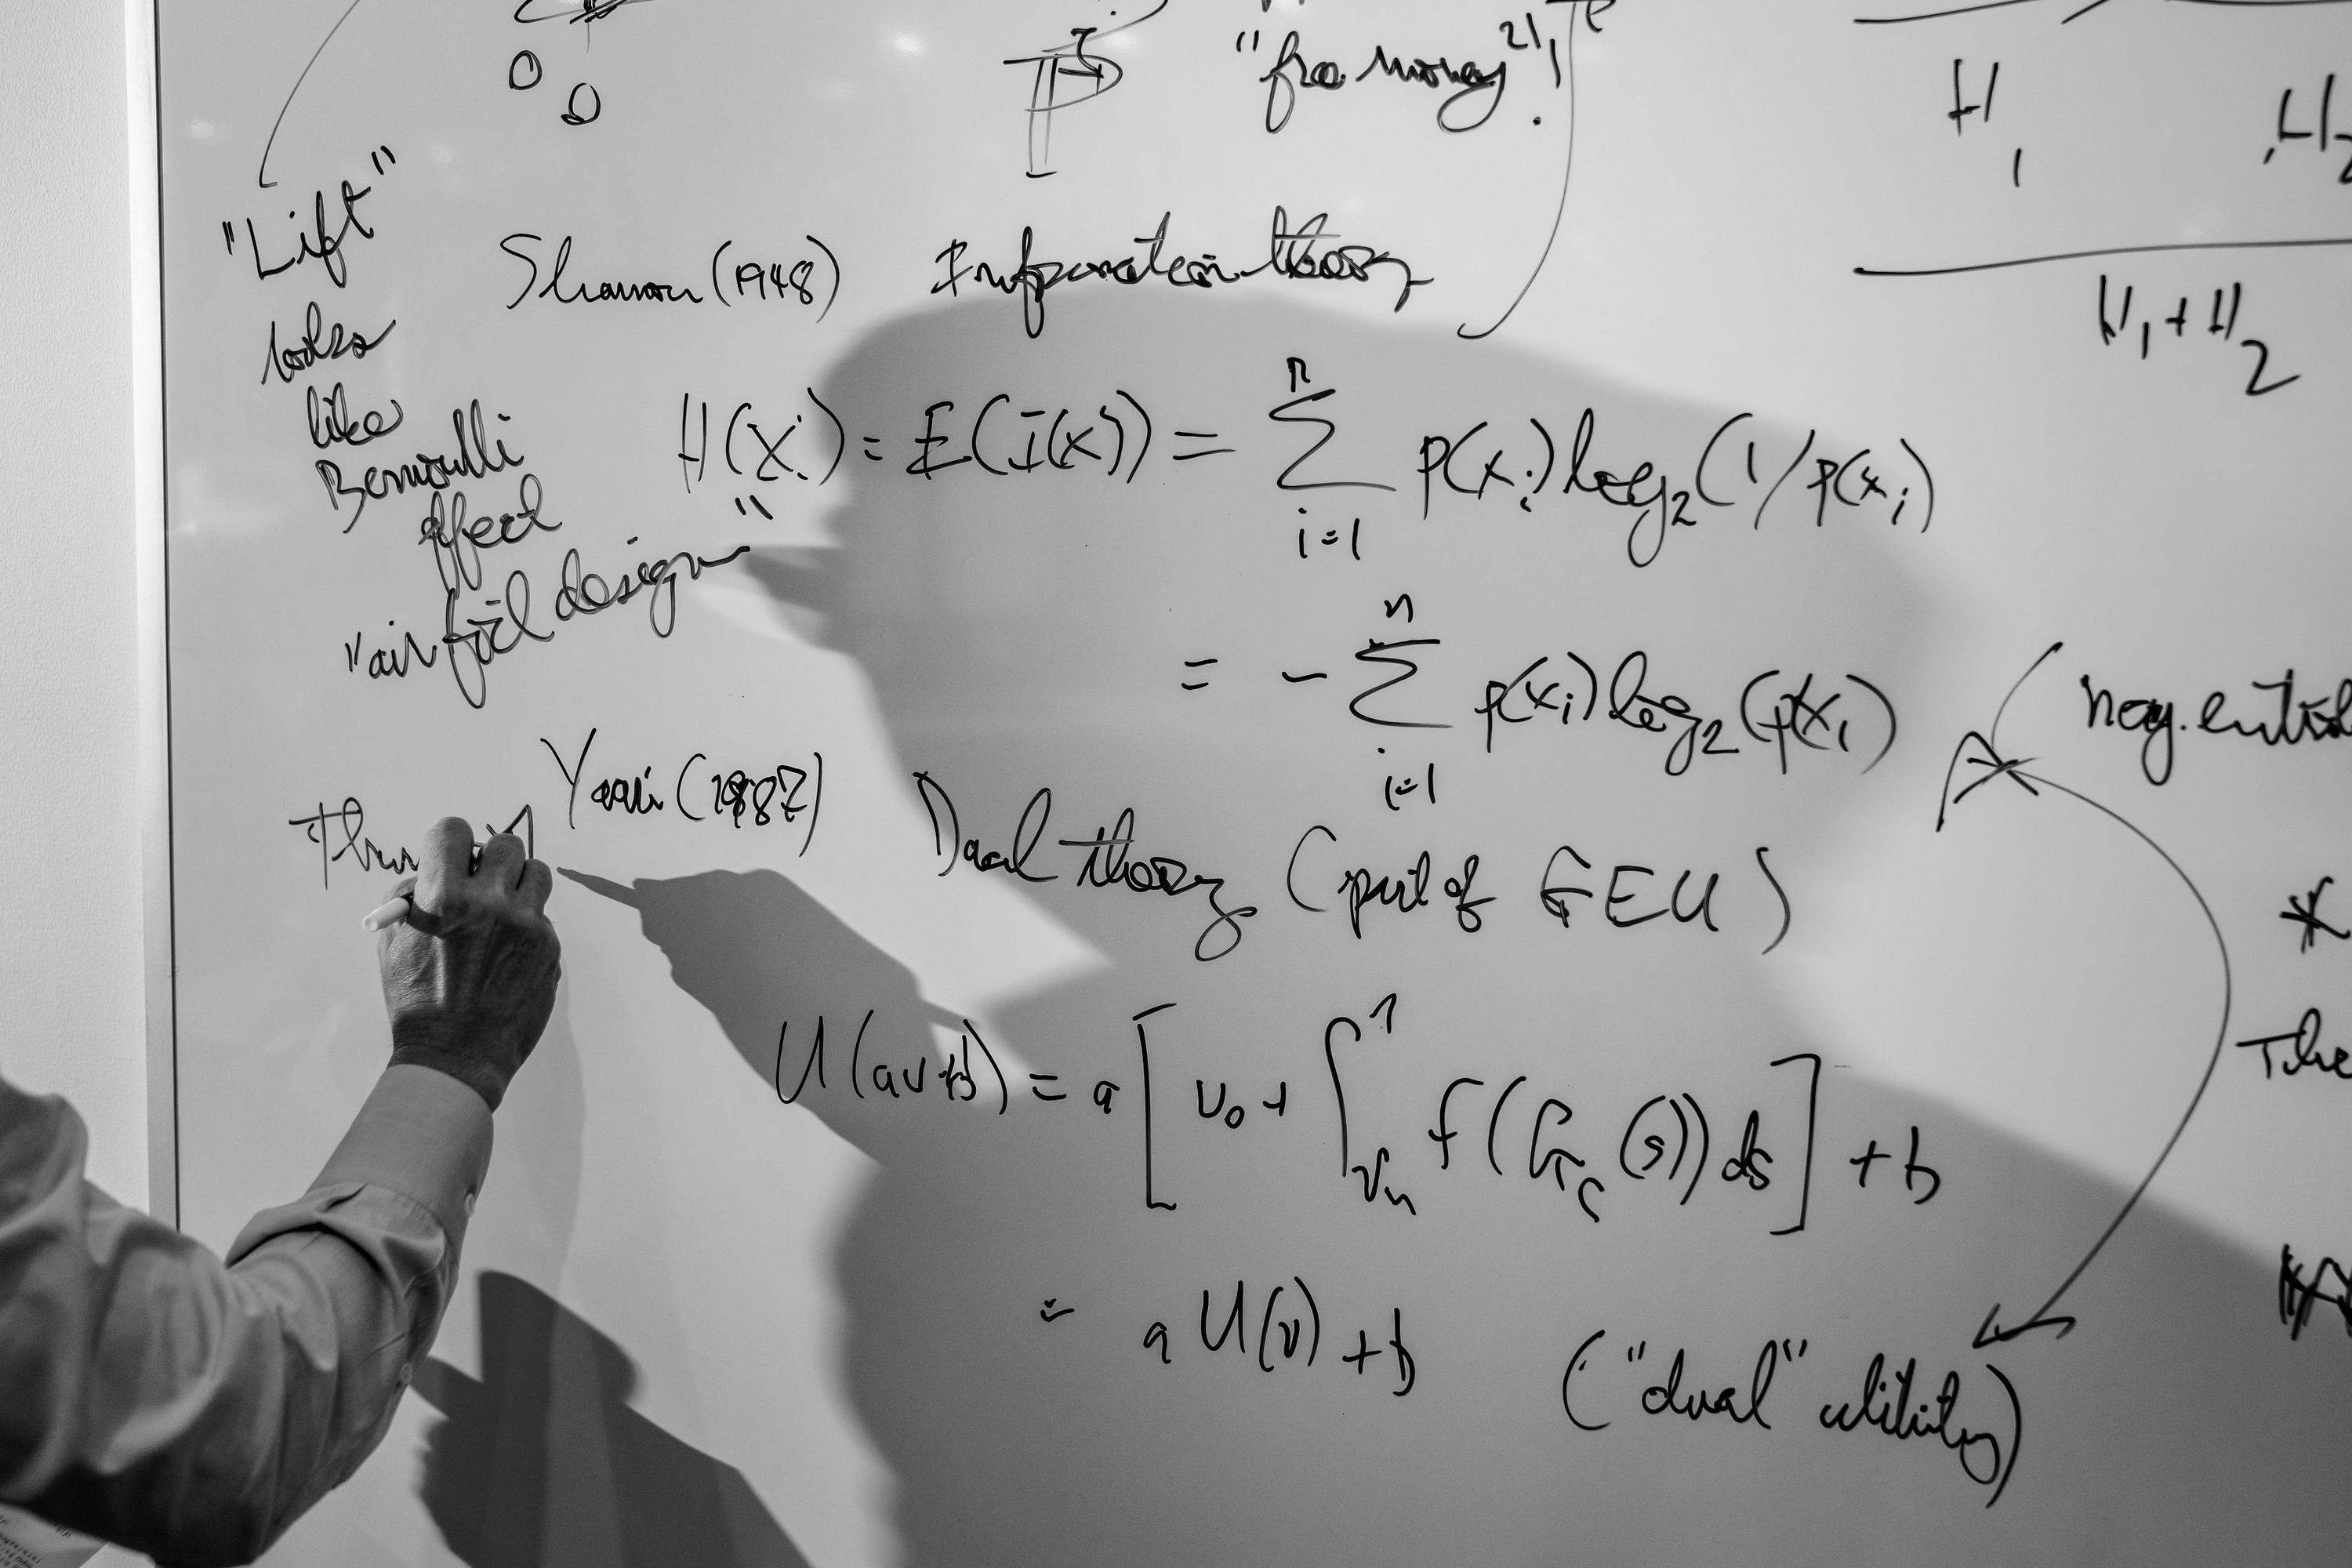 "free money"!
H1
H2
H1 + H2
"Lift"
looks
like
Bernoulli
effect
"air foil design"
Shannon (1948) Information theory
H(Xi) = E(I(x)) = n Σ i=1 p(xi) log2 (1/p(xi)
= - n Σ i=1 p(xi) log2 (p(xi)
neg.
Yaari (1987) Dual theory (part of GEU)
The
U(av+b) = a [ v0 + ∫ f(G (s)) ds ] + b
= a U(v) + b ("dual" utility)